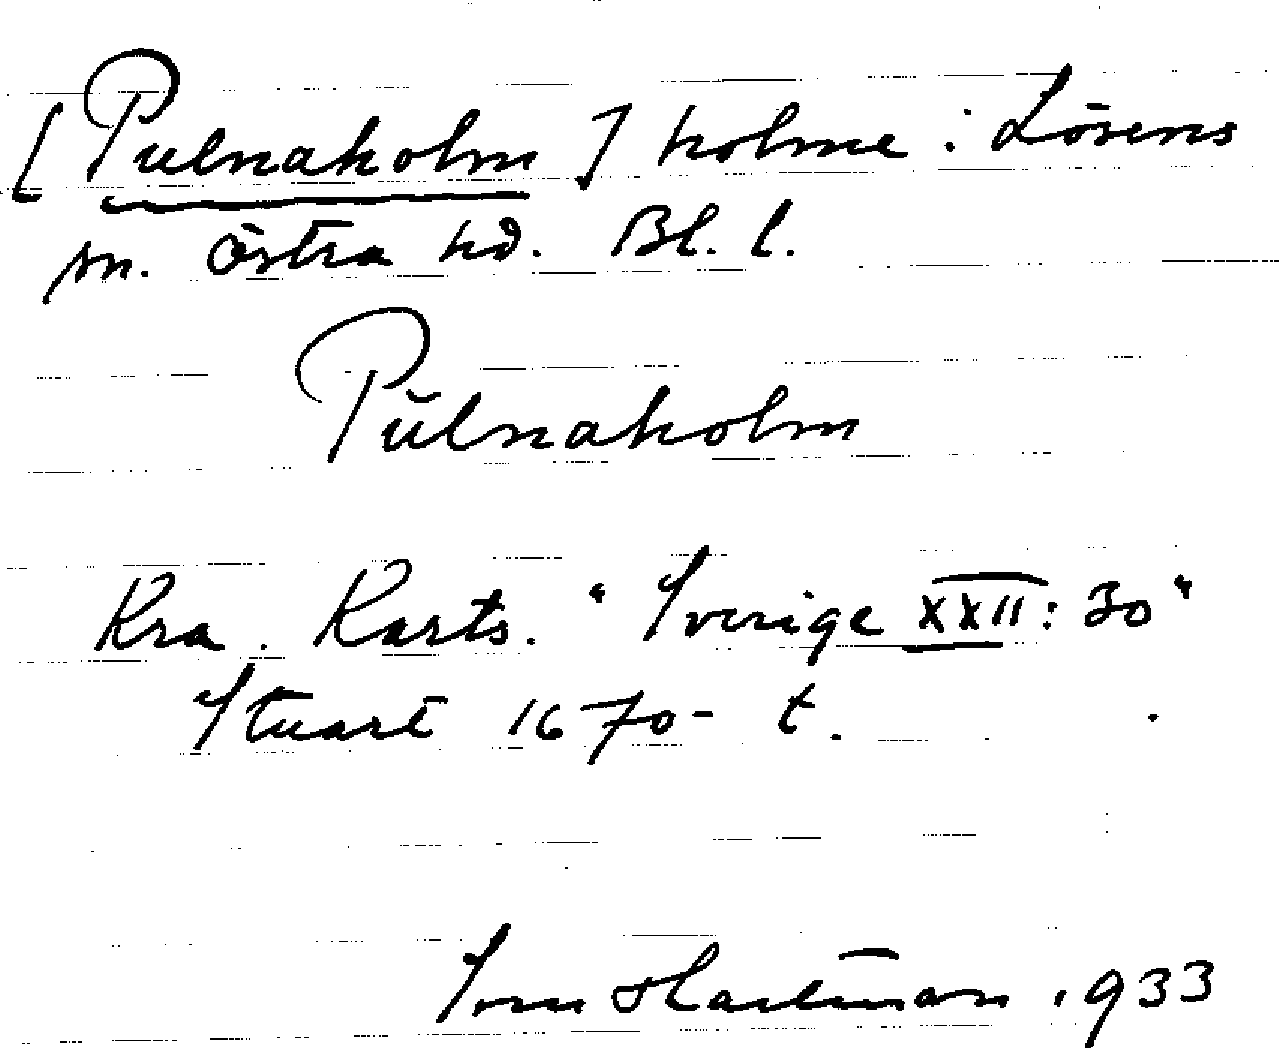 [Pulnaholm] holme i Lösens
sn. Östra hd. Bl. l.
Pŭlnaholm
Kra. Karts. "Sverige XXII: 30"
Stuart 1670-t.
Sven Hartman 1933